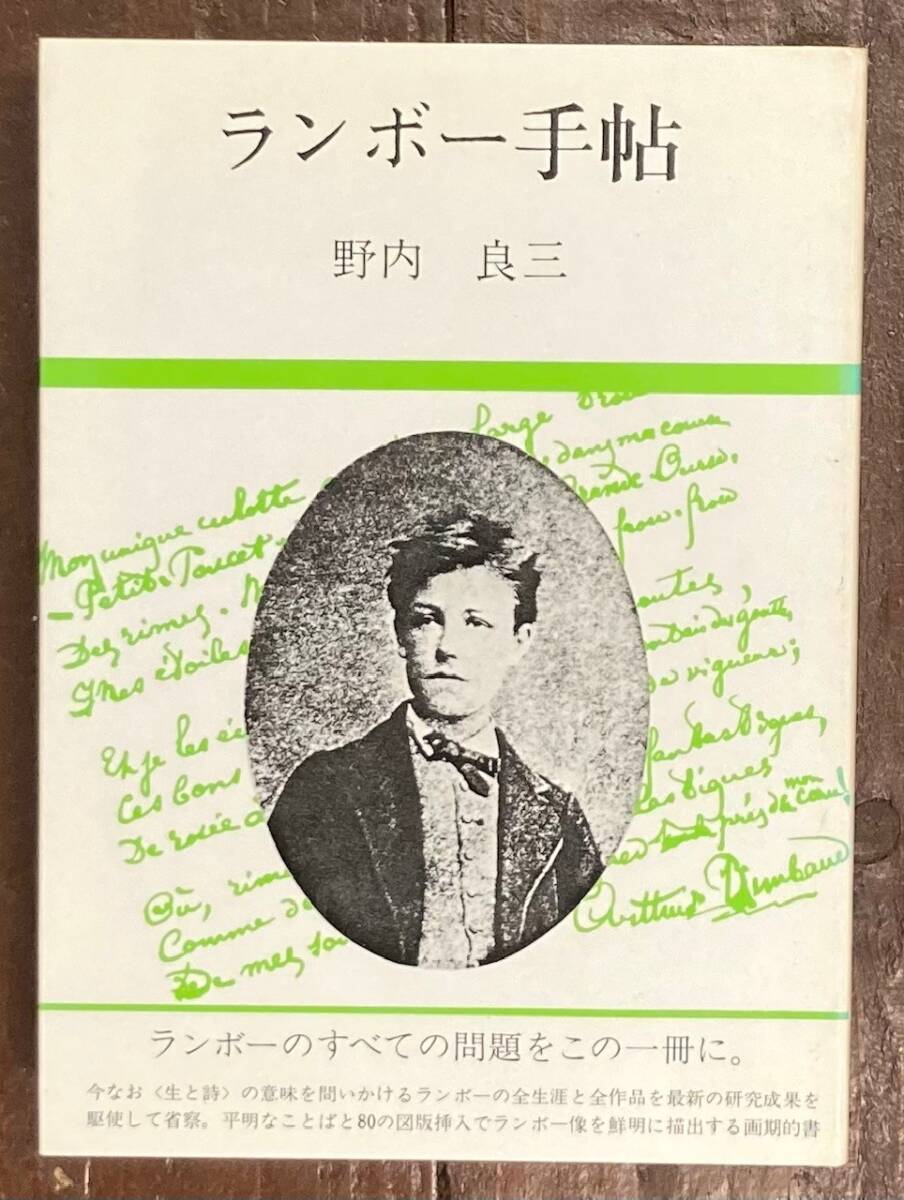 ランボー手帖
野内　良三
large
Mon unique culotte
dans ma course
Petit-Poucet
Grande Ourse.
Des rimes.
frou-frou
Mes étoiles
gouttes
de vigueur;
Et je les éc
fantastiques,
Ces bons
De rosée
Où, rim
près de mon cœur!
Comme de
Arthur Rimbaud
De mes sou
ランボーのすべての問題をこの一冊に。
今なお〈生と詩〉の意味を問いかけるランボーの全生涯と全作品を最新の研究成果を
駆使して省察。平明なことばと80の図版挿入でランボー像を鮮明に描出する画期的書